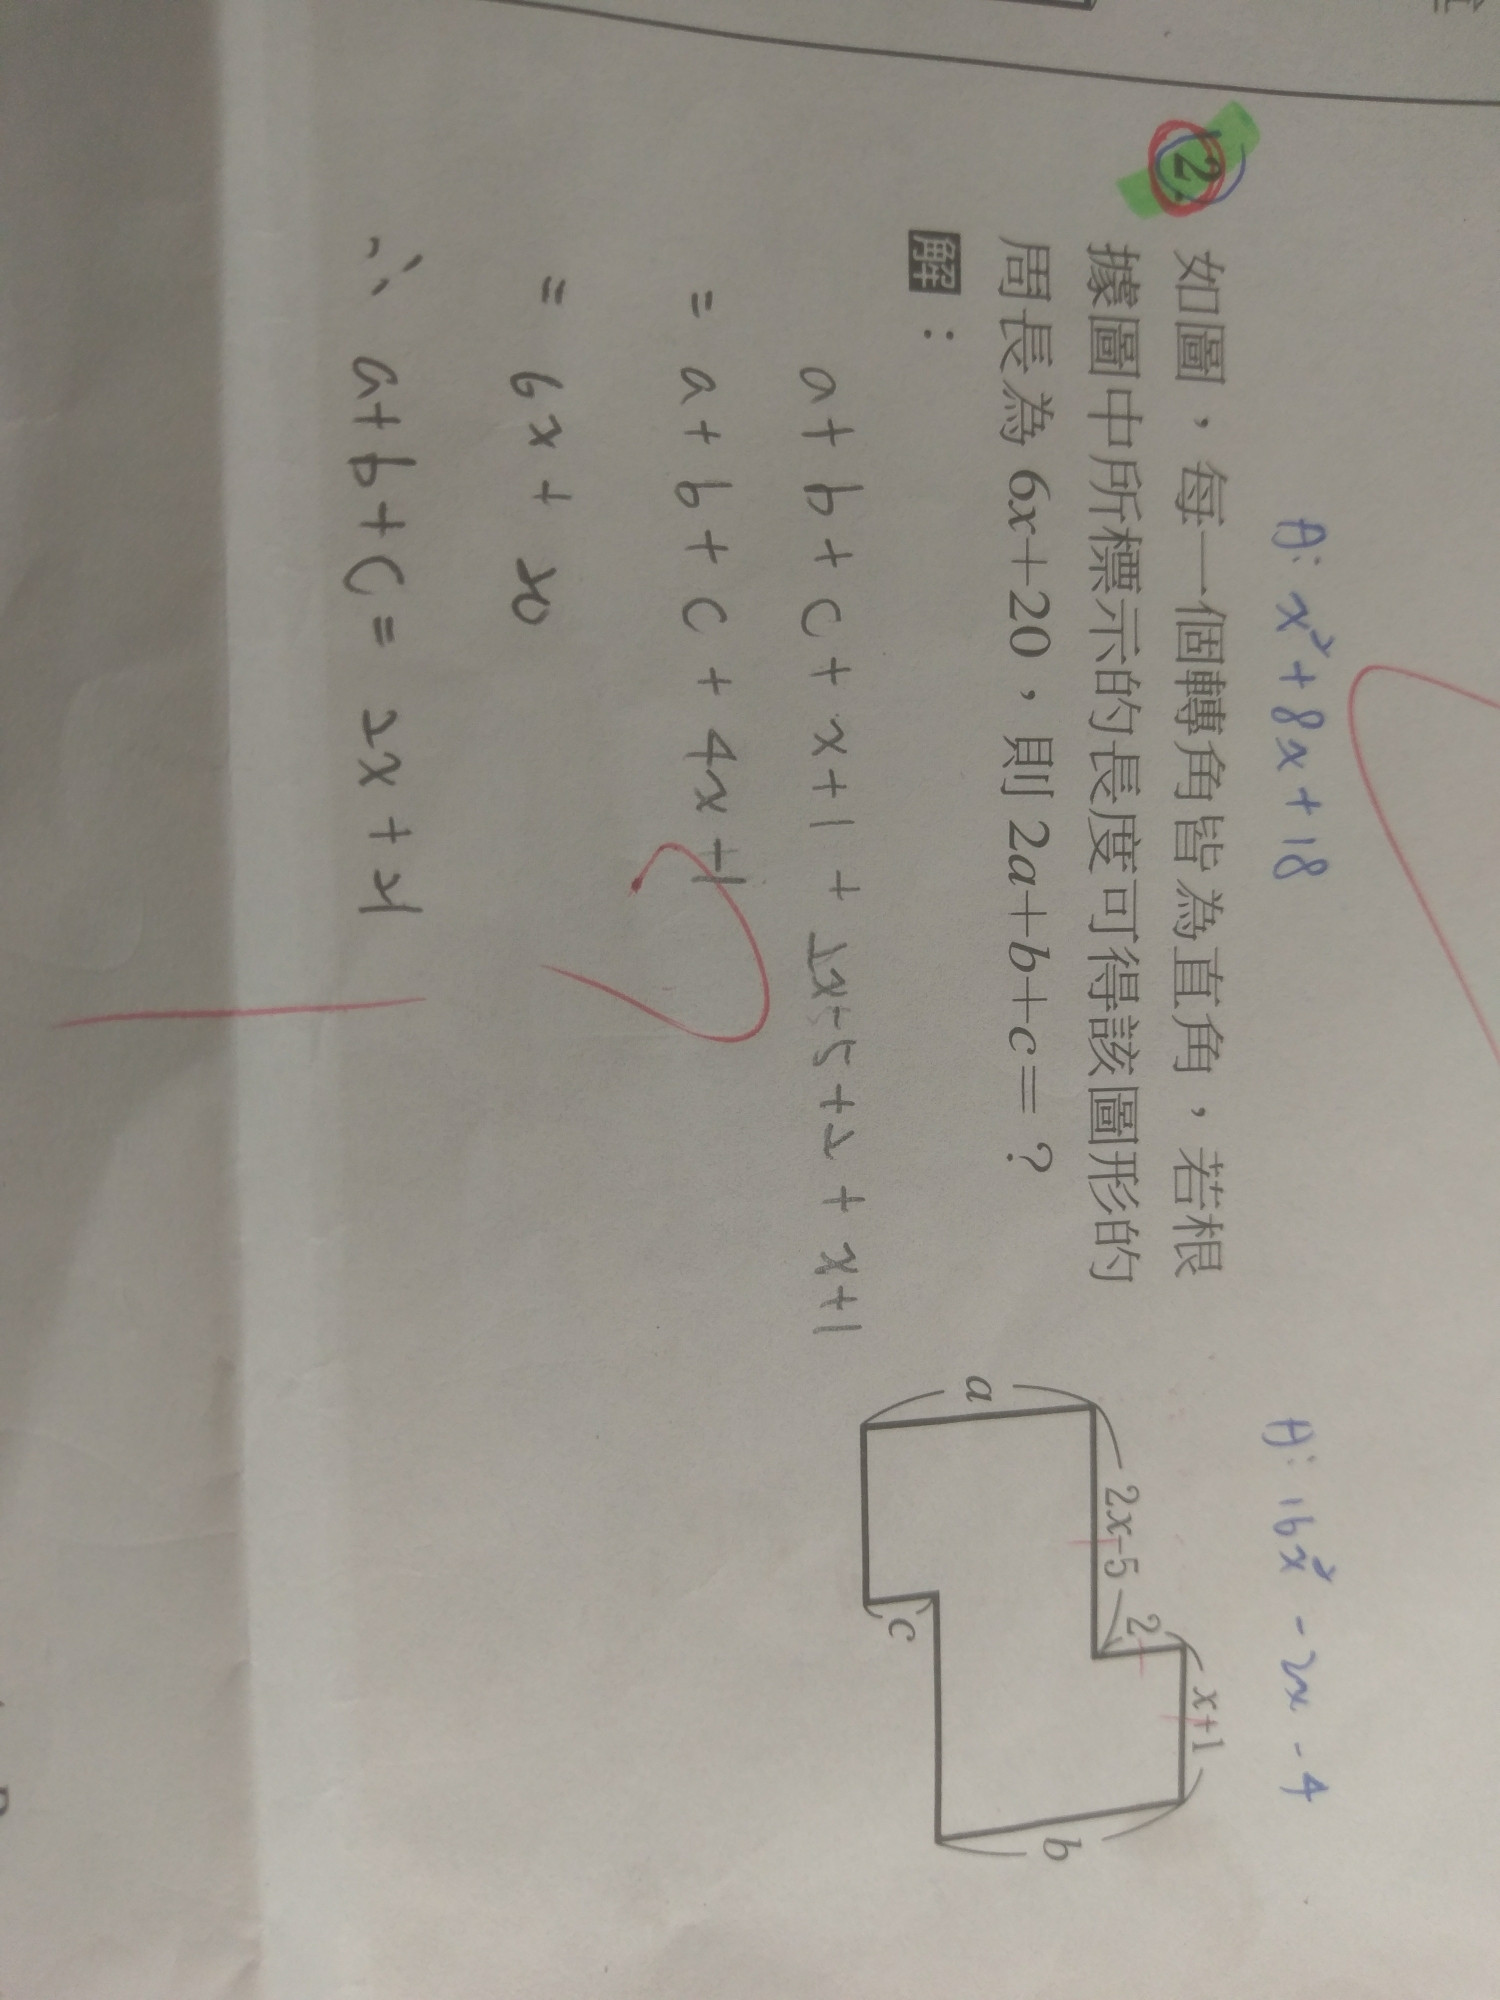 A: x²+8x+18
A: 16x²-2x-4
2.
如圖，每一個轉角皆為直角，若根
據圖中所標示的長度可得該圖形的
周長為 6x+20，則 2a+b+c=？
解：
x+1
2
2x-5
a
b
c
a+b+c+x+1+2x-5+2+x+1
=a+b+c+4x+1
=6x+20
∴ a+b+c=2x+21